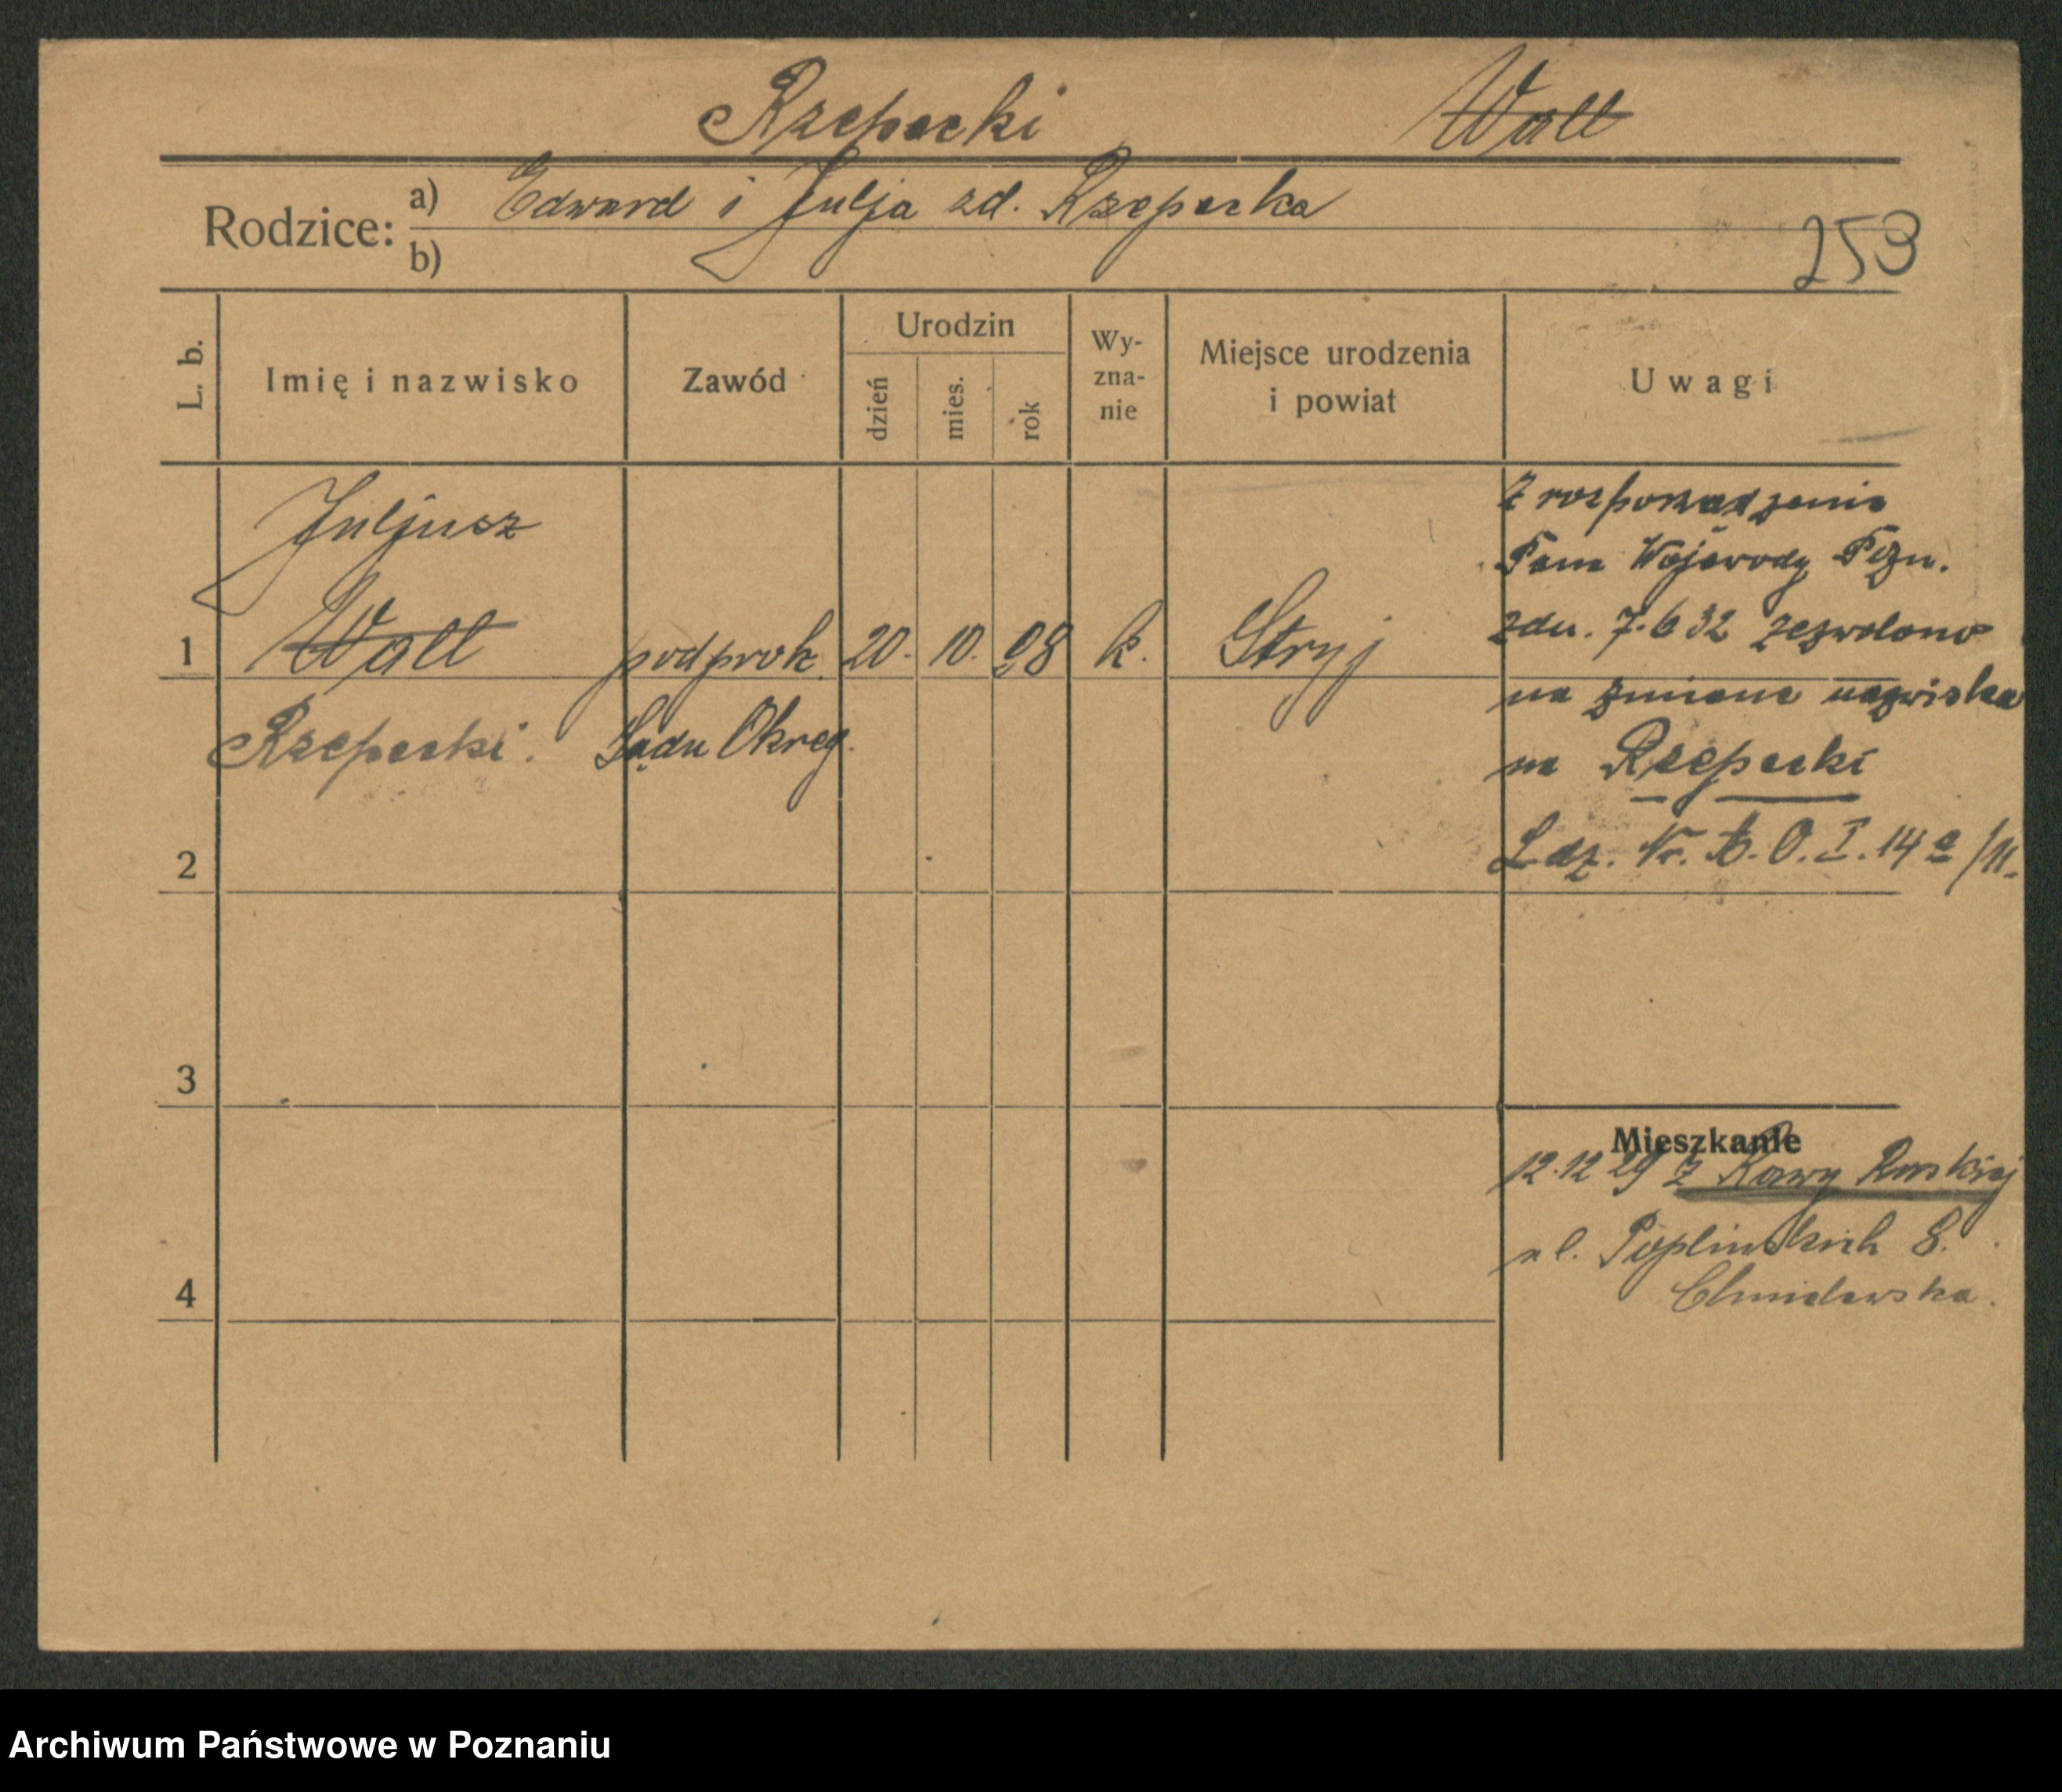 Rzepecki Wall
Rodzice: a) Edward i Julja zd. Rzepecka
b)
253
L. b.
Imię i nazwisko
Zawód
Urodzin
dzień
mies.
rok
Wy-
zna-
nie
Miejsce urodzenia
i powiat
Uwagi
Juljusz
1 Wall podprok. 20. 10. 98 k. Stryj
Rzepecki. Sądu Okręg.
Z rozporządzenia
Pana Wojewody Pozn.
zdn. 7.6 32 zezwolono
na zmianę nazwiska
na Rzepecki
Ldz. Nr. A. O. I. 14 a/11.
2
3
Mieszkanie
12.12 29 z Rawy Ruskiej
ul. Poplińskich 8.
Chmielewska.
4
Archiwum Państwowe w Poznaniu